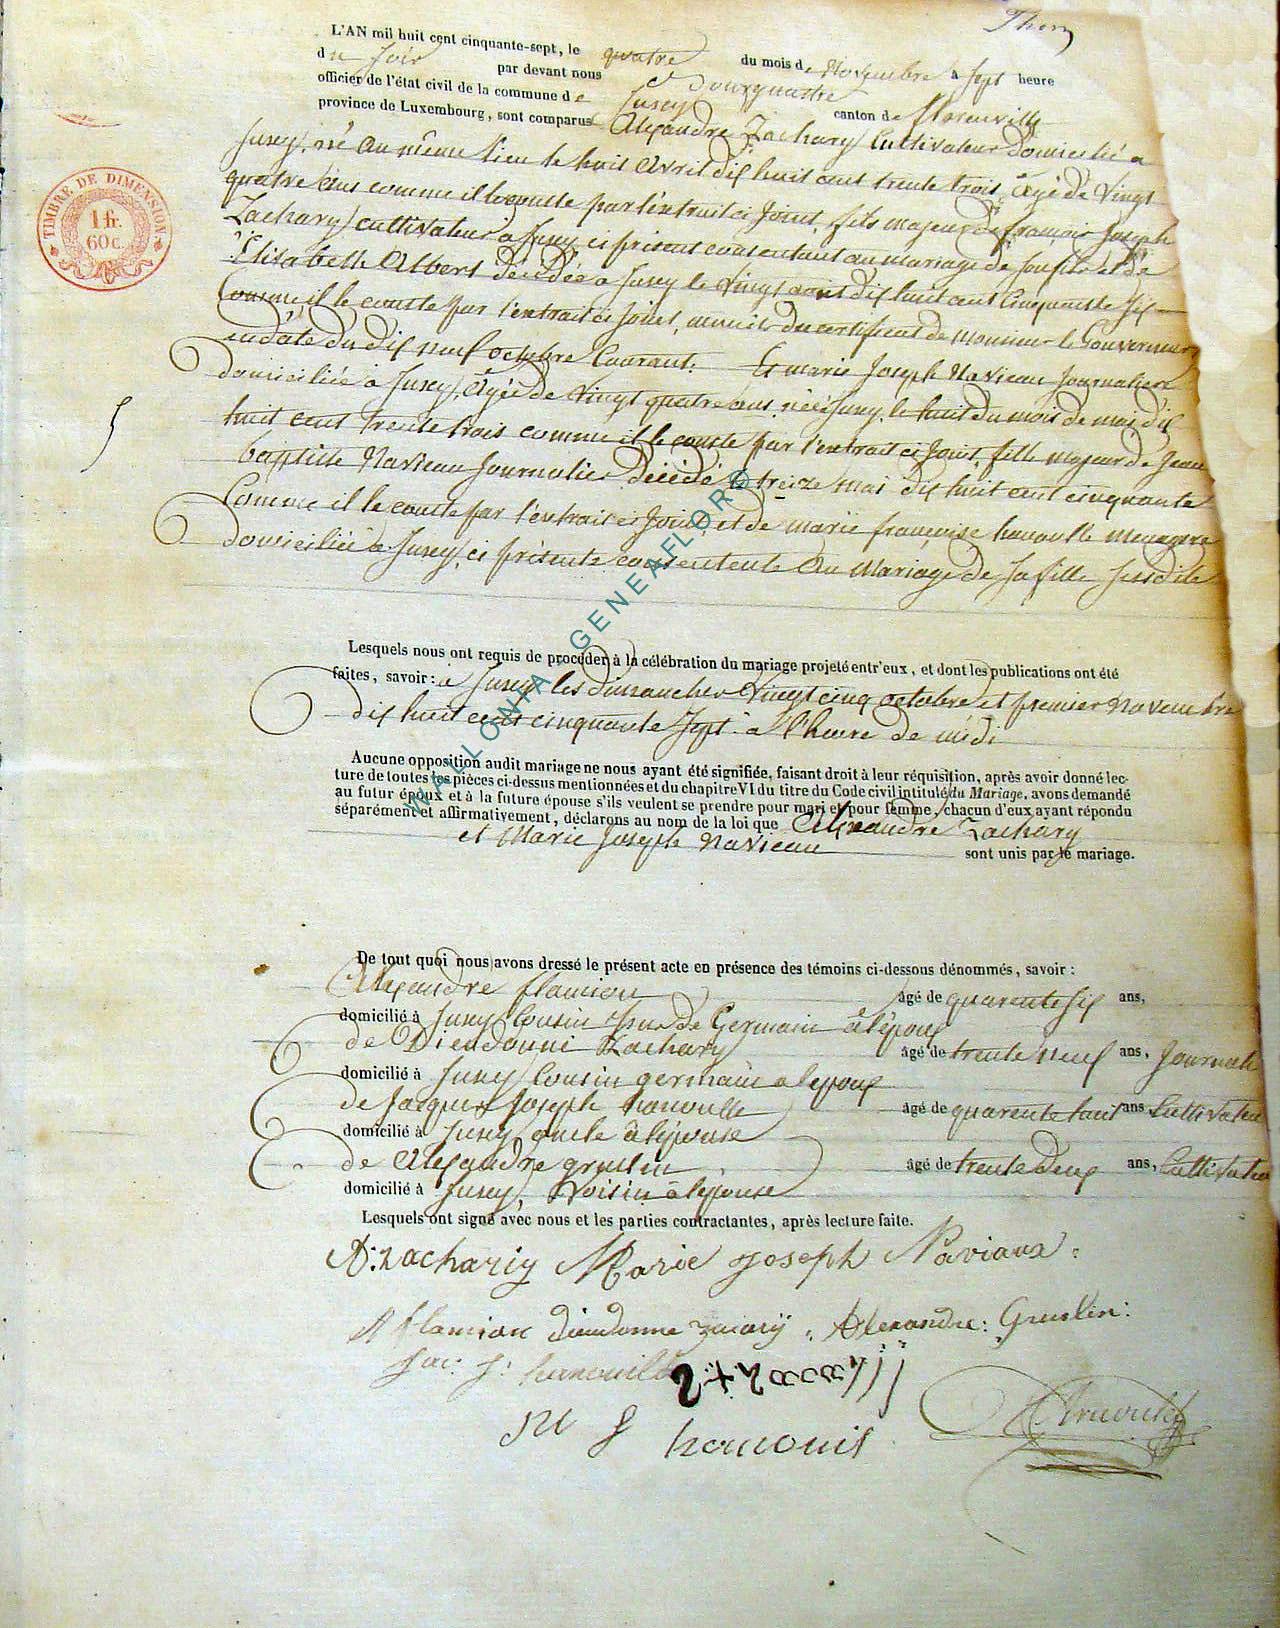 L'AN mil huit cent cinquante-sept, le quatre du mois de Novembre à sept heure
du soir par devant nous
officier de l'état civil de la commune de Jusey canton de florenville
province de Luxembourg, sont comparus Alexandre Zachary Cultivateur domicilié a
Jusey, né au même lieu le huit avril dix huit cent trente trois, âgé de vingt
quatre ans comme il le conste par l'extrait ci joint, fils majeur de françois Joseph
Zachary cultivateur à Jusey ci présent consentant au mariage de son fils et de
Elisabeth Albert décédée a Jusey le vingt aout dix huit cent cinquante six
Comme il le conste par l'extrait ci joint, munis du certificat de Monsieur le Gouverneur
en date du dix neuf octobre Courant. Et marie Joseph Navieau Journaliere
domiciliée à Jusey, âgée de vingt quatre ans, née à Jusey, le huit du mois de mai dix
huit cent trente trois comme il le conste par l'extrait ci joint, fille majeur de Jean
baptiste Navieau Journalier décédé le treize mai dix huit cent cinquante
Comme il le conste par l'extrait ci joint, et de marie françoise hanoulle menagere
domiciliée à Jusey, ci présente consentente au mariage de sa fille susdite
Lesquels nous ont requis de procéder à la célébration du mariage projeté entr'eux, et dont les publications ont été
faites, savoir: à Jusey les dimanches vingt cinq octobre et premier Novembre
dix huit cent cinquante sept à l'heure de midi
Aucune opposition audit mariage ne nous ayant été signifiée, faisant droit à leur réquisition, après avoir donné lec-
ture de toutes les pièces ci-dessus mentionnées et du chapitre VI du titre du Code civil intitulé du Mariage, avons demandé
au futur époux et à la future épouse s'ils veulent se prendre pour mari et pour femme, chacun d'eux ayant répondu
séparément et affirmativement, déclarons au nom de la loi que Alexandre Zachary
et Marie Joseph Navieau sont unis par le mariage.
De tout quoi nous avons dressé le présent acte en présence des témoins ci-dessous dénommés, savoir:
Alexandre flamion âgé de quarente six ans,
domicilié à Jusey Cousin Germain à l'époux
de Dieudonné Zachary âgé de trente neuf ans, Journali
domicilié à Jusey Cousin germain a lepoux
de Jacques Joseph hanoulle âgé de quarente huit ans Cultivateu
domicilié à Jusey oncle à l'épouse
de Alexandre gruslin âgé de trente deux ans, Cultivateu
domicilié à Jusey, Voisin à lepouse
Lesquels ont signé avec nous et les parties contractantes, après lecture faite.
A: zachariy Marie Joseph Naviaux
A flamion dieudonne zacarij Alexandre: Gruslin:
Jac: J: hanouille
M f hanouil
TIMBRE DE DIMENSION.
1 fr.
60 c.
WALLONIA GENEAFLOR©